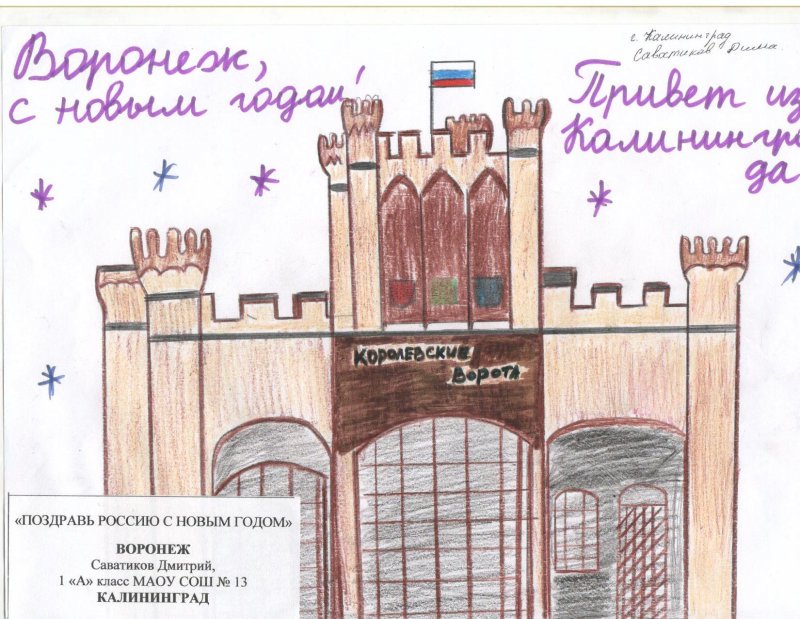 Воронеж,
с новым годом!
г. Калининград
Саватиков Дима.
Привет из
Калинингра
да
Королевские
Ворота
«ПОЗДРАВЬ РОССИЮ С НОВЫМ ГОДОМ»
ВОРОНЕЖ
Саватиков Дмитрий,
1 «А» класс МАОУ СОШ № 13
КАЛИНИНГРАД